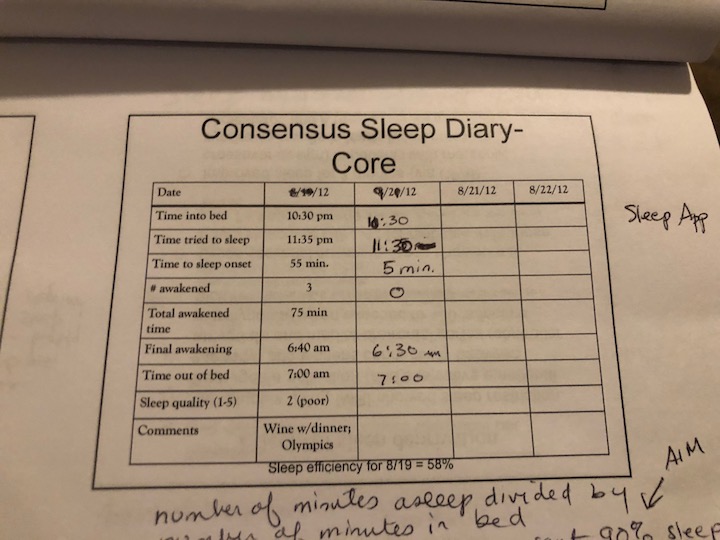 Consensus Sleep Diary-
Core
Date 8/19/12 9/20/12 8/21/12 8/22/12
Time into bed 10:30 pm :30
Time tried to sleep 11:35 pm 11:30
Time to sleep onset 55 min. 5 min.
# awakened 3 0
Total awakened
time 75 min
Final awakening 6:40 am 6:30 am
Time out of bed 7:00 am 7:00
Sleep quality (1-5) 2 (poor)
Comments Wine w/dinner;
Olympics
Sleep efficiency for 8/19 = 58%
Sleep App
AIM
number of minutes asleep divided by
number of minutes in bed
90% sleep